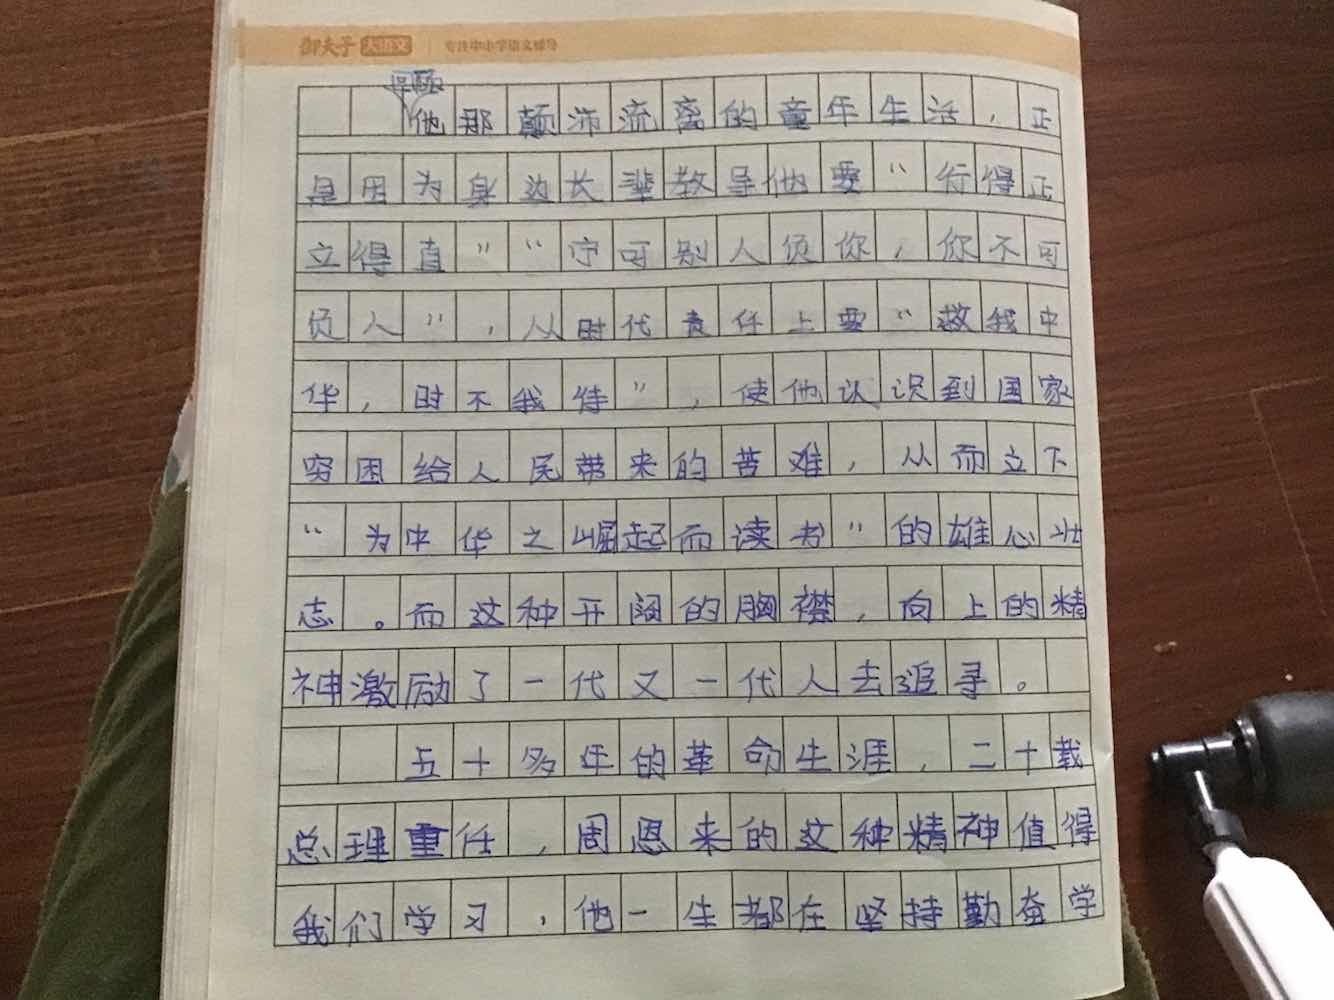 御夫子 大语文 | 专注中小学语文辅导
回顾
他那颠沛流离的童年生活，正
是因为身边长辈教导他要“行得正
立得直”“宁可别人负你，你不可
负人”，从时代责任上要“救我中
华，时不我待”，使他认识到国家
穷困给人民带来的苦难，从而立下
“为中华之崛起而读书”的雄心壮
志。而这种开阔的胸襟，向上的精
神激励了一代又一代人去追寻。
五十多年的革命生涯，二十载
总理重任，周恩来的这种精神值得
我们学习，他一生都在坚持勤奋学